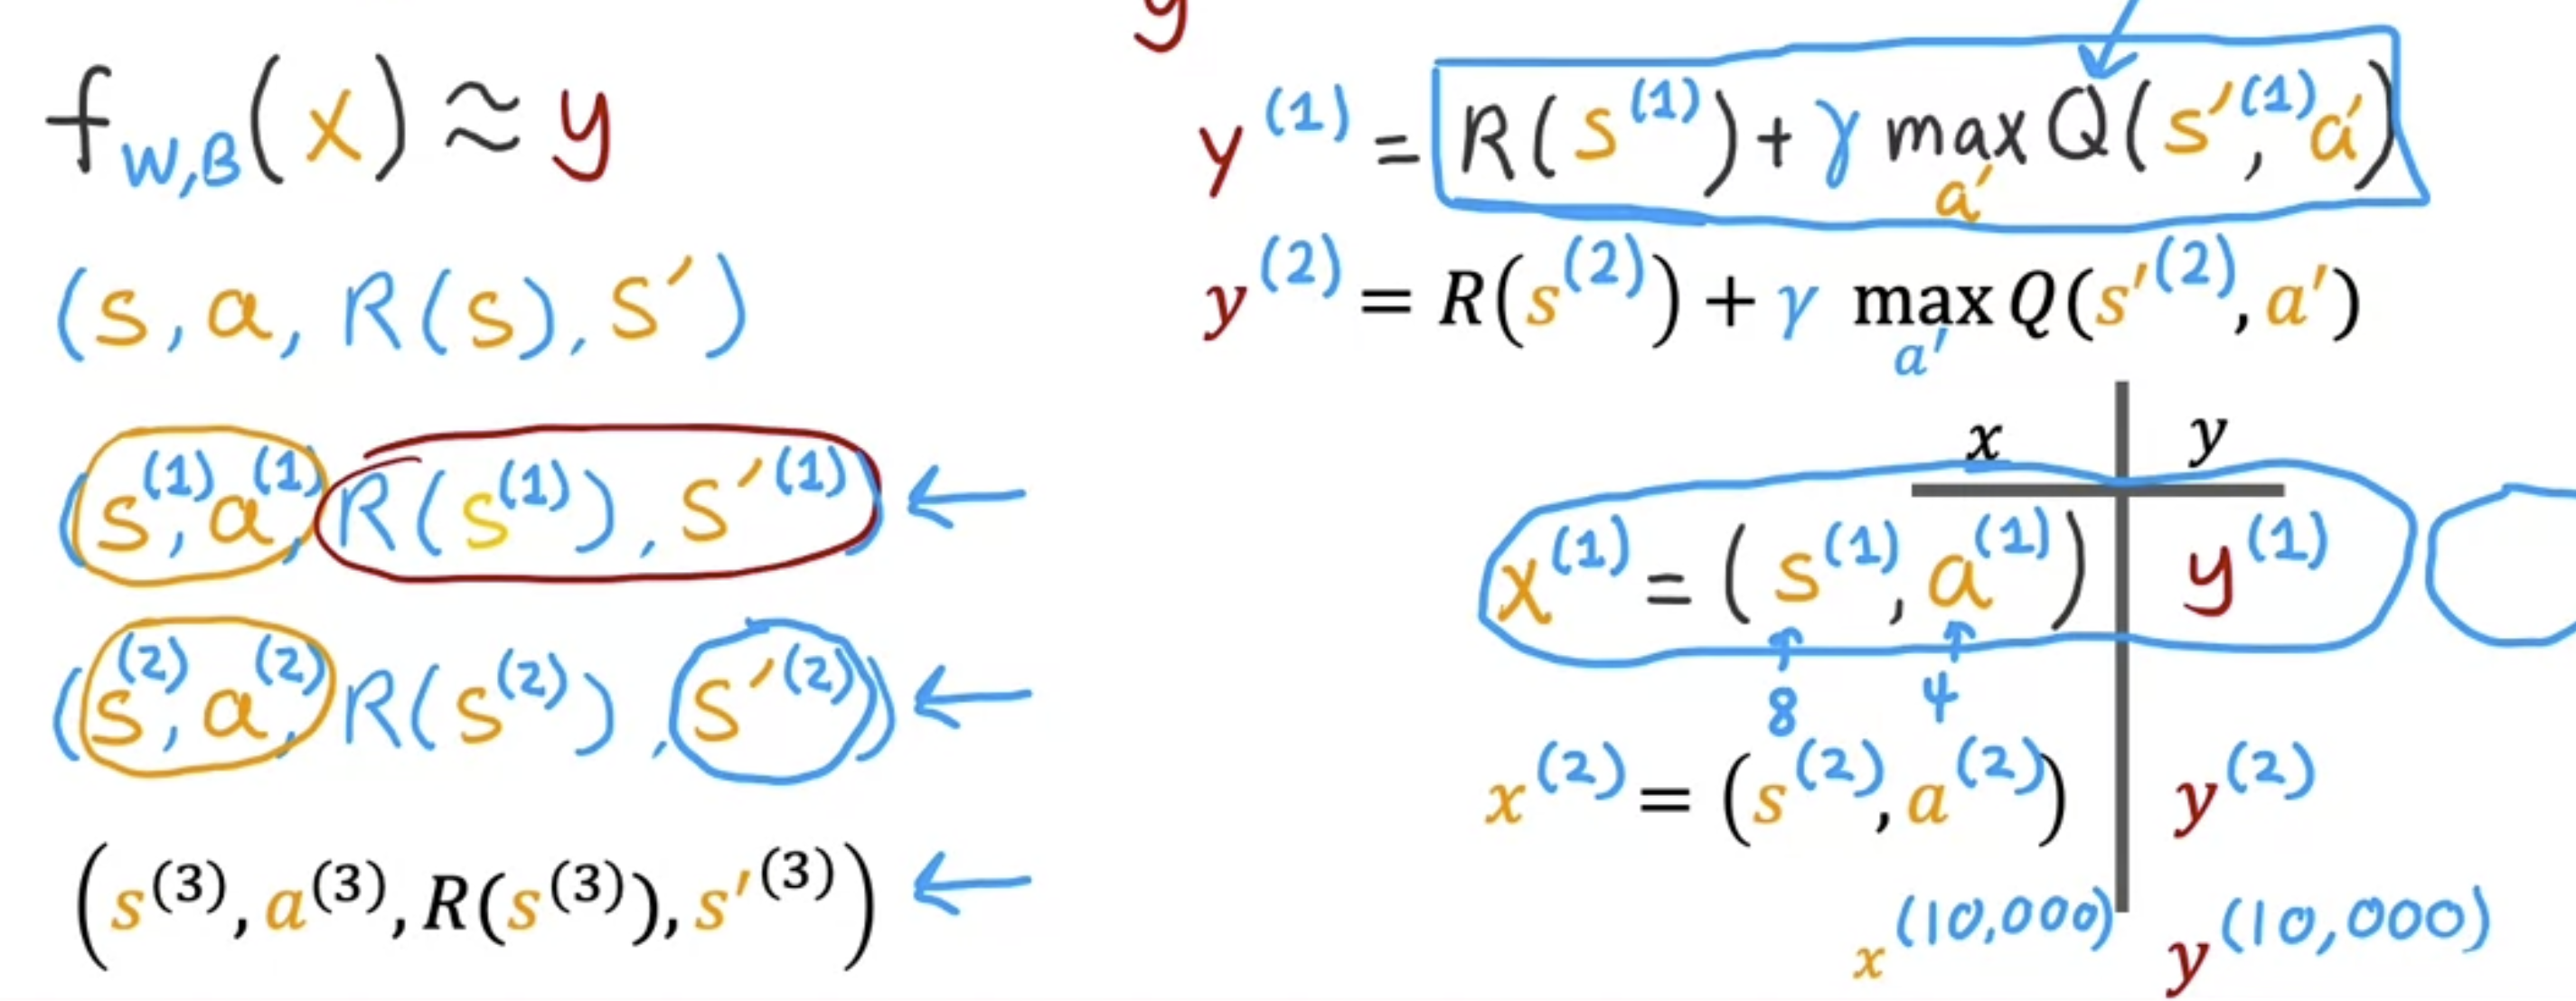 y
f_{W,B}(x) ≈ y
(s, a, R(s), s')
(s^{(1)}, a^{(1)}, R(s^{(1)}), s'^{(1)}) ←
(s^{(2)}, a^{(2)}, R(s^{(2)}), s'^{(2)}) ←
(s^{(3)}, a^{(3)}, R(s^{(3)}), s'^{(3)}) ←
y^{(1)} = R(s^{(1)}) + γ max_{a'} Q(s'^{(1)}, a')
y^{(2)} = R(s^{(2)}) + γ max_{a'} Q(s'^{(2)}, a')
x y
x^{(1)} = (s^{(1)}, a^{(1)}) y^{(1)}
8 4
x^{(2)} = (s^{(2)}, a^{(2)}) y^{(2)}
x^{(10,000)} y^{(10,000)}